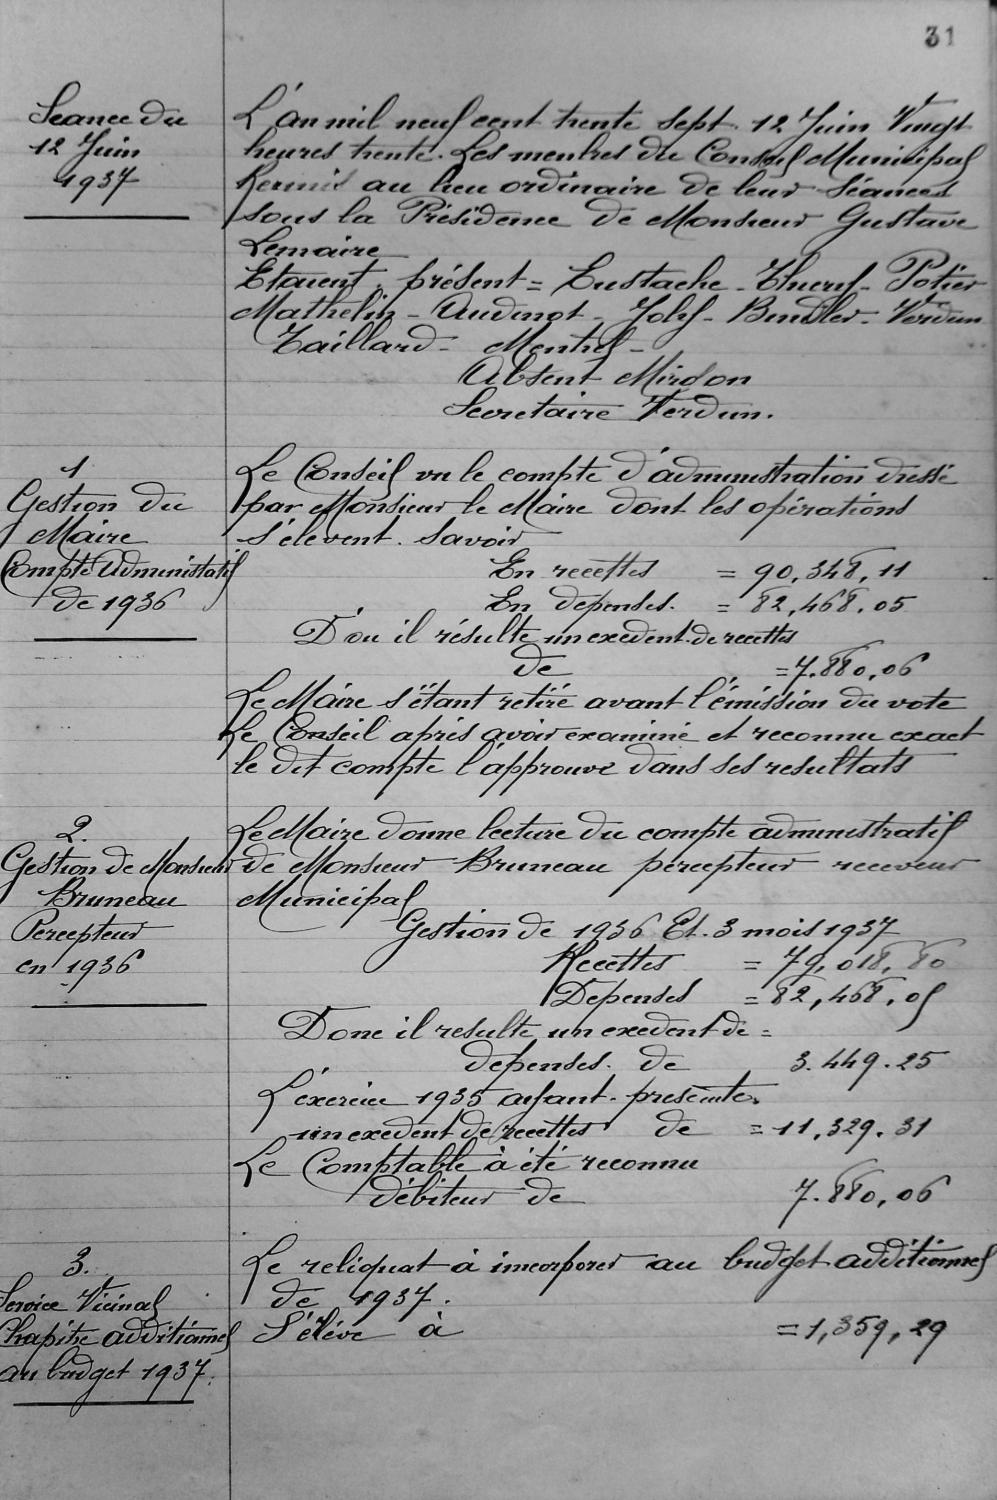 31
Seance du
12 Juin
1937
L'an mil neuf cent trente sept. 12 Juin Vingt
heures trente. Les menbres du Conseil Municipal
Reunis au lieu ordinaire de leur Séances
sous la Présidence de Monsieur Gustave
Lemaire
Etaient présent = Eustache - - Potier
Mathelin - Audinot - Joly - - Verdun
Taillard -
Absent Mirdon
Secretaire Verdun.
1
Gestion du
Maire
Compte Administatif
de 1936
Le Conseil vu le compte d'administration dressé
par Monsieur le Maire dont les opérations
s'élevent. Savoir
En recettes = 90,348,11
En depenses. = 82,468.05
D'ou il résulte un exedent de recettes
de = 7.880,06
Le Maire s'étant retiré avant l'émission du vote
Le Conseil aprés avoir examiné et reconnu exact
le dit compte l'approuve dans ses resultats
2.
Gestion de Monsieur
Bruneau
Percepteur
en 1936
Le Maire donne lecture du compte administratif
de Monsieur Bruneau percepteur receveur
Municipal
Gestion de 1936 Et. 3 mois 1937
Recettes = 79,018,80
Depenses = 82,468.05
Donc il resulte un exedent de =
depenses. de 3.449.25
L'éxercice 1935 ayant presenté
un exedent de recettes de = 11,329.31
Le Comptable à été reconnu
débiteur de 7.880,06
3.
Service Vicinal
Chapitre additiònnel
au budget 1937.
Le reliquat à incorporer au budget additionnel
de 1937.
S'éléve à = 1,359,29